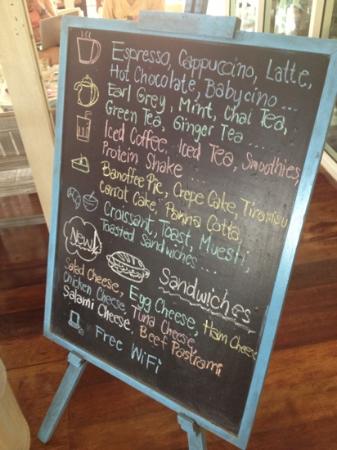 Espresso, Cappuccino, Latte,
Hot Chocolate, Babycino ...
Earl Grey, Mint, Chai Tea,
Green Tea, Ginger Tea ....
Iced Coffee, Iced Tea, Smoothies,
Protein Shake ....
Banoffee Pie, Crepe Cake, Tiramisu
Carrot Cake, Panna Cotta
Croissant, Toast, Muesli,
Toasted Sandwiches ....
New!
Sandwiches
Salad Cheese, Egg Cheese, Ham Cheese
Chicken Cheese, Tuna Cheese,
Salami Cheese, Beef Pastrami
Free WiFi